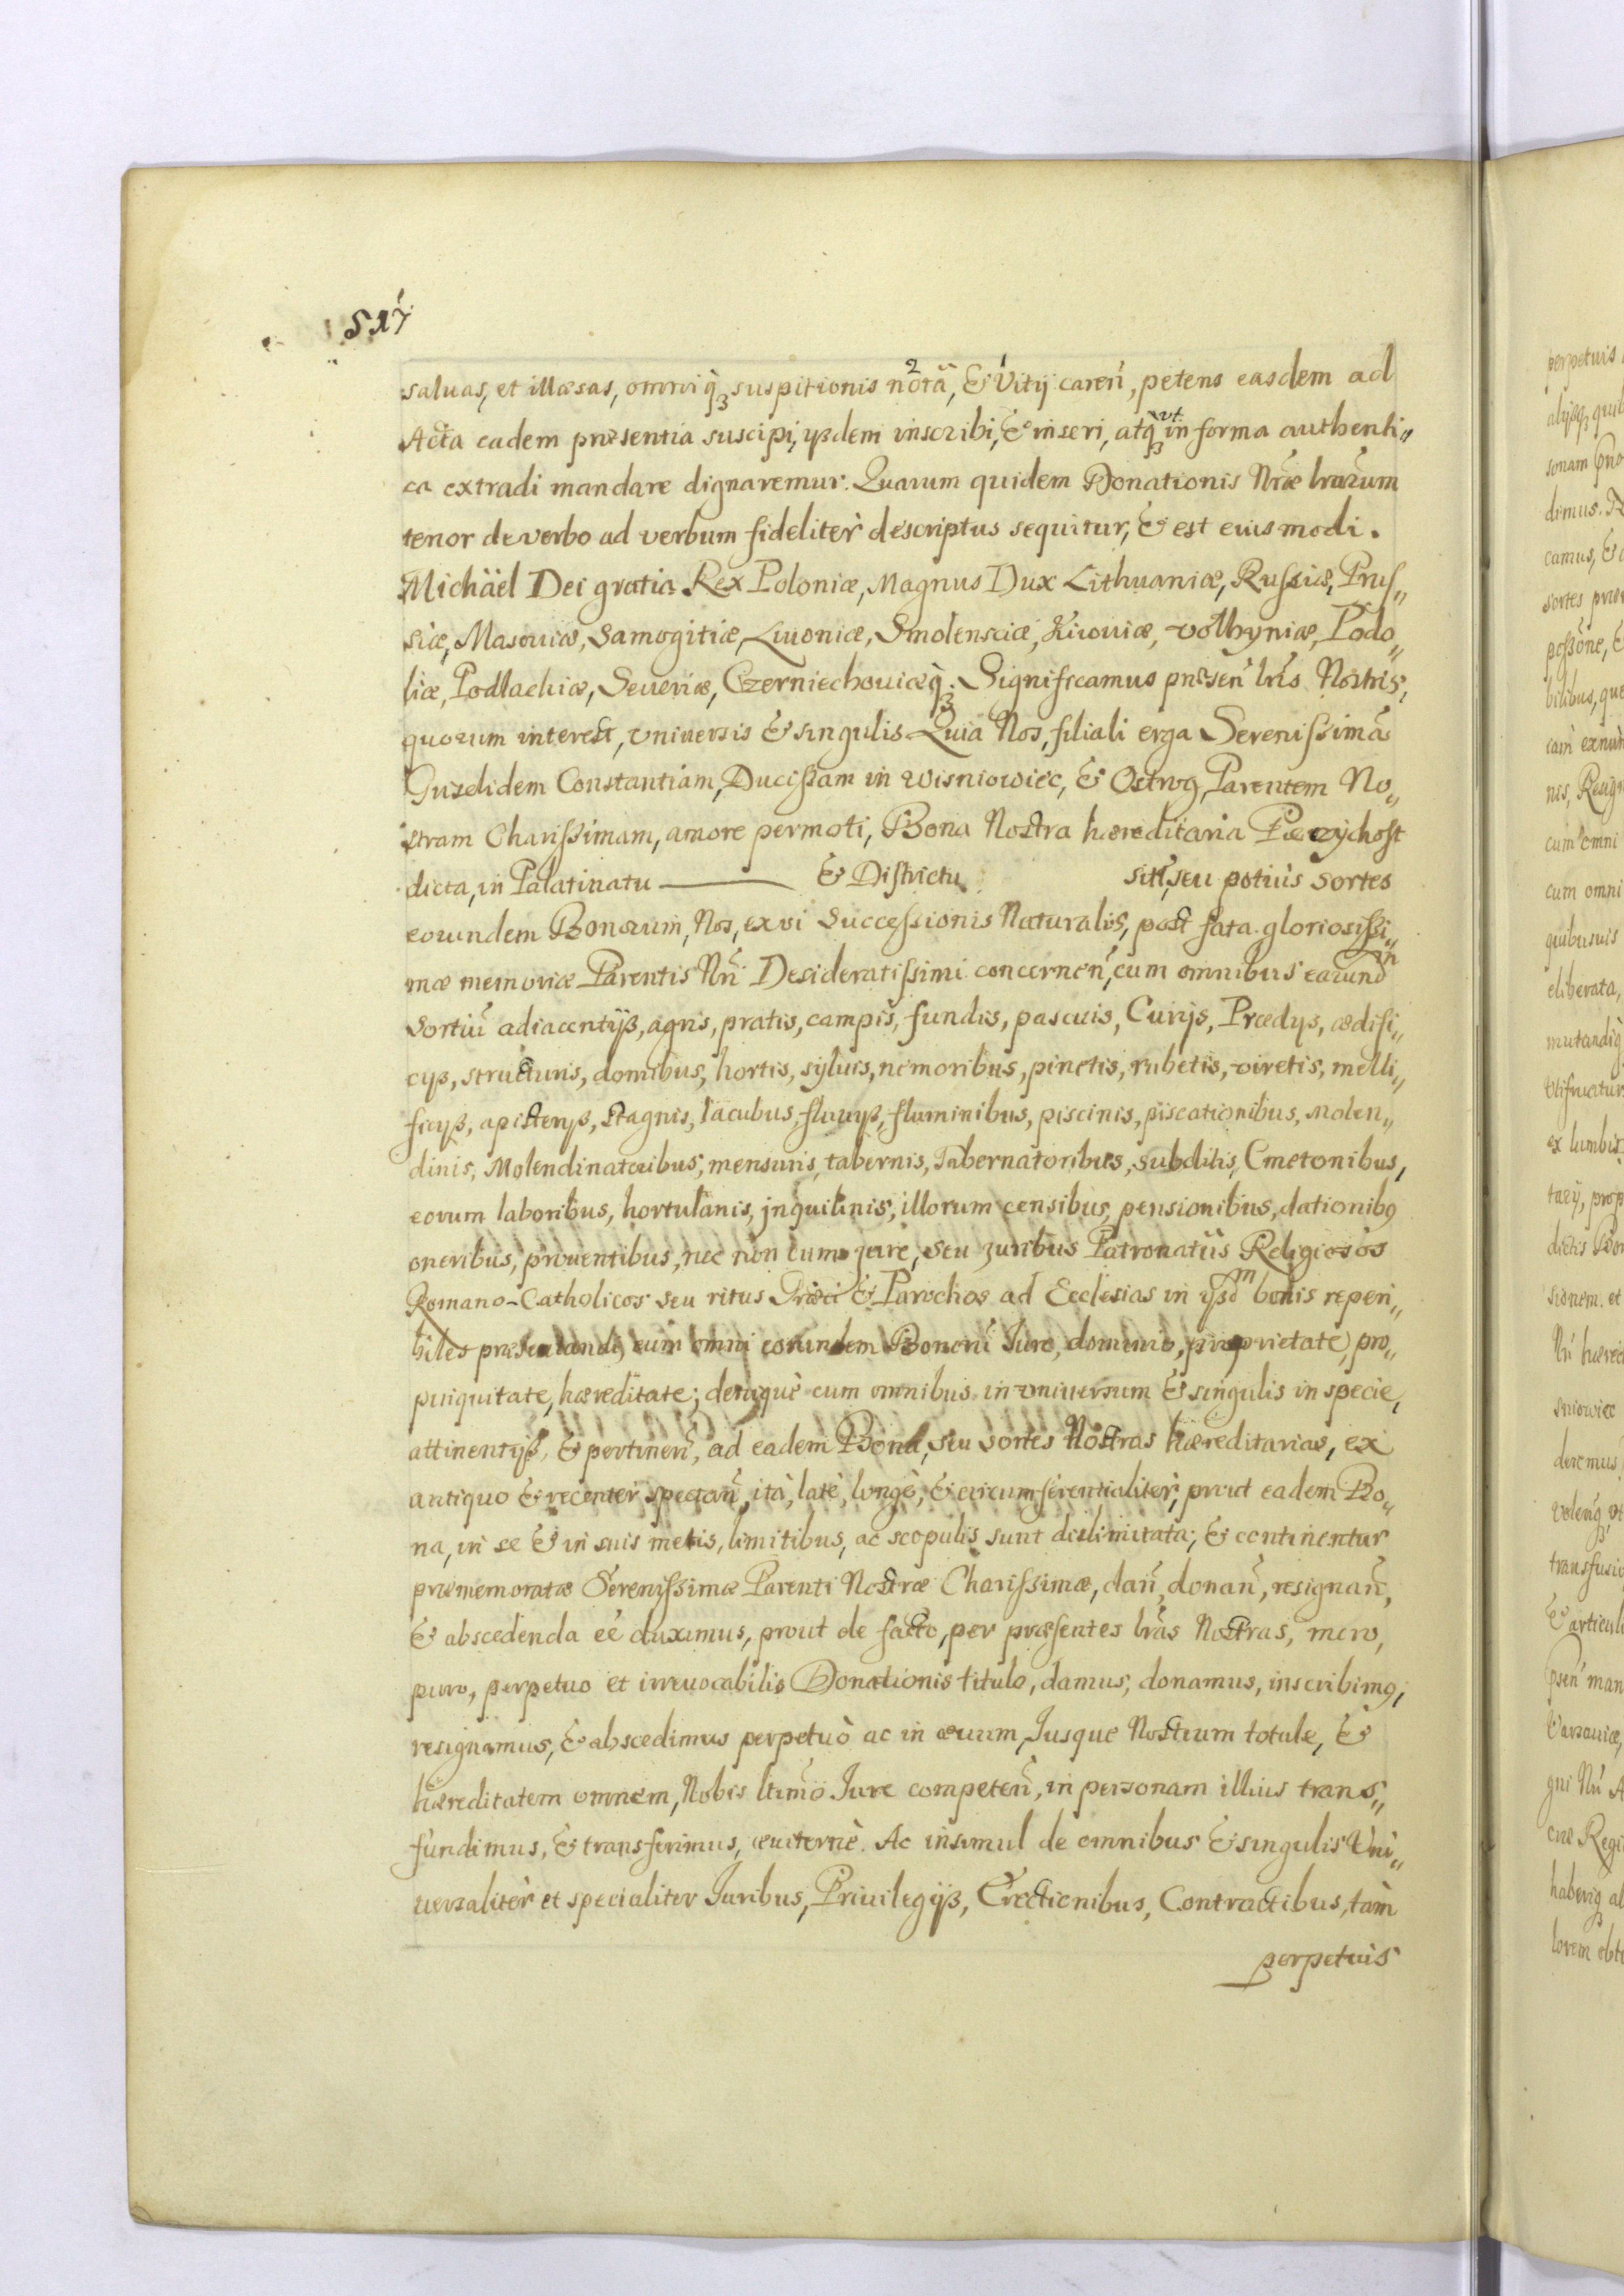 517
saluas, et illæsas, omniq́ꝫ suspitionis notã, & Vitij careñ, petens easdem ad
Acta eadem præsentia suscipi, ijsdem inscribi, & inseri, atq́ꝫ vt in forma authenti„
ca extradi mandare dignaremur. Quarum quidem Donationis Nræ lrarum
tenor de verbo ad verbum fideliter descriptus sequitur, & est eiusmodi.
Michäel Dei gratia Rex Poloniæ, Magnus Dux Lithuaniæ, Russiæ, Prus„
siæ, Masouiæ, Samogitiæ, Liuoniæ, Smolensciæ, Kiiouiæ, Volhyniæ, Podo„
liæ, Podlachiæ, Seueriæ, Czerniechouiæq́ꝫ. Significamus præseñ lris Nostris,
quorum interest, vniuersis & singulis Quia Nos, filiali erga Serenissimã
Griseldidem Constantiam, Ducissam in Wisniowiec, & Ostrog, Parentem No„
stram Charissimam, amore permoti, Bona Nostra hæreditaria
dicta, in Palatinatu ——— & Districtu sitã, seu potiùs Sortes
eorundem Bonorum, Nos, ex vi Successionis Naturalis, post fata gloriosissi„
mæ memoriæ Parentis Nri Desideratissimi concerneñ, cum omnibus earund̃m
Sortiũ adiacentijs, agris, pratis, campis, fundis, pascuis, Curijs, Prædijs, ædifi„
cijs, structuris, domibus, hortis, syluis, nemoribus, pinetis, rubetis, viretis, melli„
ficijs, apisterijs, Stagnis, lacubus, fluuijs, fluminibus, piscinis, piscationibus, Molen„
dinis, Molendinatoribus, mensuris, tabernis, Tabernatoribus, subditis, Cmetonibus,
eorum laboribus, hortulanis, jnquilinis, illorum censibus, pensionibus, dationibꝰ
oneribus, prouentibus, nec non cum jure, seu juribus Patronatûs Religiosos
Romano-Catholicos seu ritus Græci & Parochos ad Ecclesias in ijsd̃m bonis reperi„
biles præsentandi, cum omni eorundem Bonorũ Iure, dominio, proprietate, pro„
pinquitate, hæreditate; deniquè cum omnibus in vniuersum & singulis in specie,
attinentijs, & pertineñ, ad eadem Bona, seu sortes Nostras hæreditarias, ex
antiquo & recenter spectañ, ità, latè, longè, & circumferentialitèr, prout eadem Bo„
na, in se & in suis metis, limitibus, ac scopulis sunt dislimitata, & continentur
præmemoratæ Serenissimæ Parenti Nostræ Charissimæ, dañ, donañ, resignañ,
& abscedenda eẽ duximus, prout de facto, per præsentes lrãs Nostras, mero,
puro, perpetuo et irreuocabilis Donationis titulo, damus, donamus, inscribimꝰ,
resignamus, & abscedimus perpetuò ac in æuum, Jusque Nostrum totale, &
hæreditatem omnem, Nobis ltimo Iure competeñ, in personam illius trans„
fundimus, & transferimus, æuiternè. Ac insimul de omnibus & singulis Vni„
uersaliter et specialiter Juribus, Priuilegijs, Erectionibus, Contractibus, tàm
perpetuis